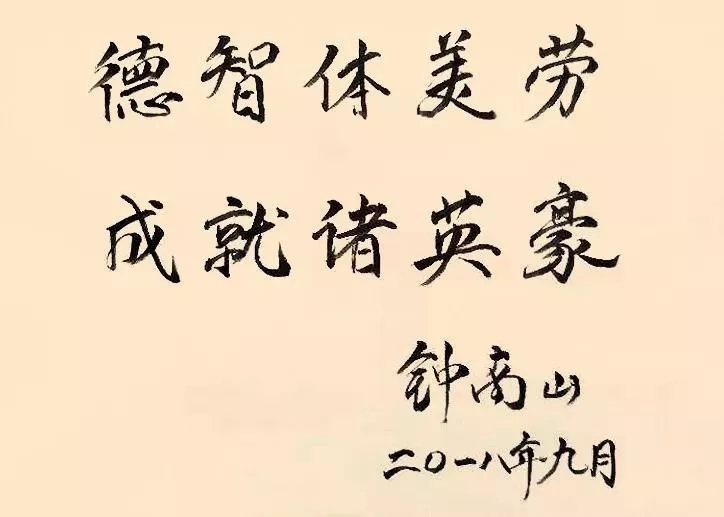 德智体美劳
成就诸英豪
钟南山
二〇一八年九月